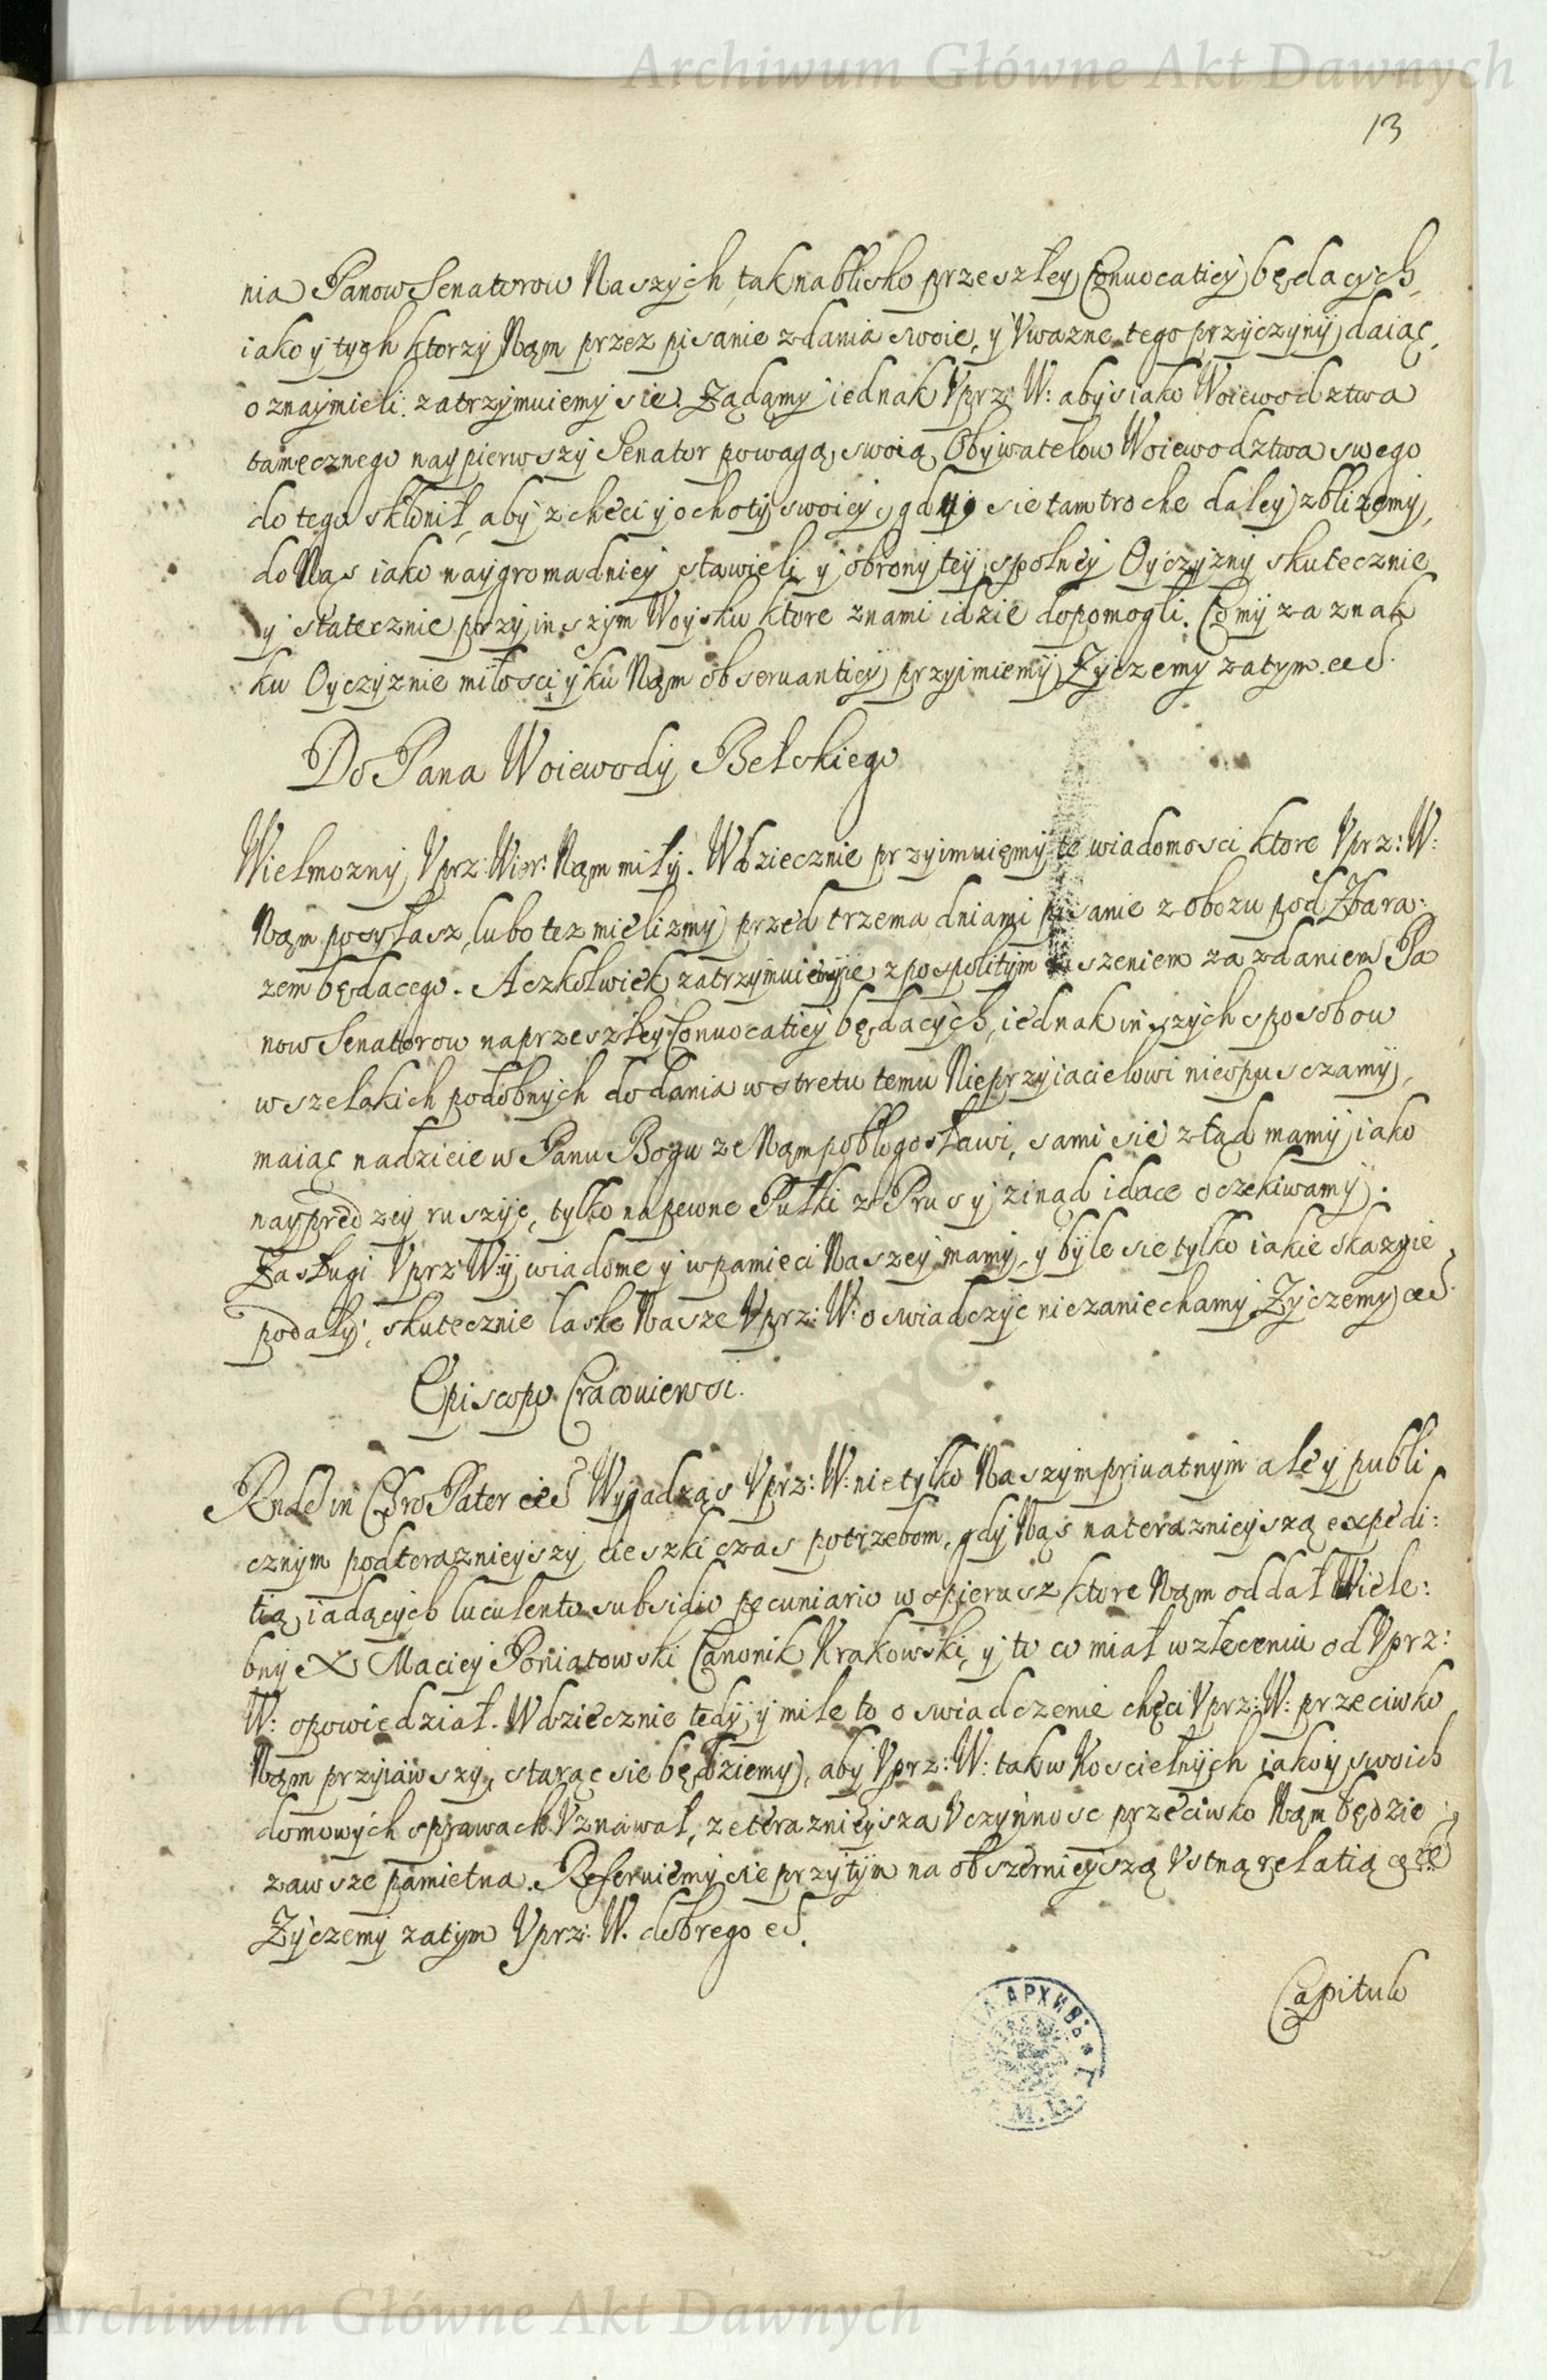 Archiwum Główne Akt Dawnych
13
nia Panow Senatorow Naszych, tak nablisko przeszłey Conuocatiey będących,
iako y tych ktorzy Nąm przez pisanie zdania swoie, y Vwazne tego przyczyny daiąc,
oznaymieli. zatrzymuiemy sie. Ządąmy iednak Vprz: W: abys iako Woiewodztwa
tamecznego naypierwszy Senator powagą swoią Obywatelow Woiewodztwa swego
do tego skłonił, aby z checi y ochoty swoiey, gdy sie tam troche daley zblizemy,
do Nąs iako naygromadniey stawieli, y obrony tey spolney Oyczyzny skutecznie
y statecznie przy inszym Woysku ktore znami idzie dopomogli. Co my za znak
ku Oyczyznie miłosci y ku Nąm obseruantiey przyimiemy Zyczemy zatym. etc.
Do Pana Woiewody Bełskiego
Wielmozny, Vprz: Wier: Nąm miły. Wdziecznie przyimuięmy te wiadomosci ktore Vprz: W:
Nąm posyłasz, lubo tez mielizmy przed trzema dniami pisanie z obozu pod Zbara:
zem będacego. Aczkolwiek zatrzymuiemysie z pospolitym ruszeniem za zdaniem Pa
now Senatorow na przeszłey Conuocatiey będacych, iednak inszych sposobow
wszelakich podobnych do dania wstretu temu Nieprzyiacielowi nieopusczamy,
maiąc nadzieie w Panu Bogu ze Nąm pobłogosławi, sami sie ztąd mamy iako
nayprędzey ruszyc, tylko na pewne Pułki z Prus y zinąd idace oczekiwamy.
Zasługi Vprz: Wy wiadome y w pamieci Naszey mamy, y byle sie tylko iakie okazyie
podały, skutecznie łaske Nasze Vprz: W: oswiadczyc niezaniechamy, Zyczemy etc.
Episcopo Cracouiensi.
Rnde in Chro Pater etc Wygadząs Vprz: W: nie tylko Naszym priuatnym ale y publi
cznym pod terazniejszy cieszki czas potrzebom, gdy Nąs na terazniejszą expedi:
tią iadących luculento subsidio pecuniario wspierasz, ktore Nąm oddał Wiele:
bny X Maciey Poniatowski Canonik Krakowski, y to co miał w zleceniu od Vprz:
W: opowiedział. Wdziecznie tedy y mile to oswiadczenie chęci Vprz: W: przeciwko
Nąm przyiąwszy, staraç sie będziemy, aby Vprz: W: tak w Koscielnych iako y swoich
domowych sprawach Vznawał, ze terazniejsza Vczynnosc przeciwko Nąm będzie
zawsze pamietna. Referuiemy sie przytym na obszernieyszą Vstną relatią
Zyczemy zatym Vprz: W. dobrego etc.
Capitulo
АРХИВЪ
Archiwum Główne Akt Dawnych